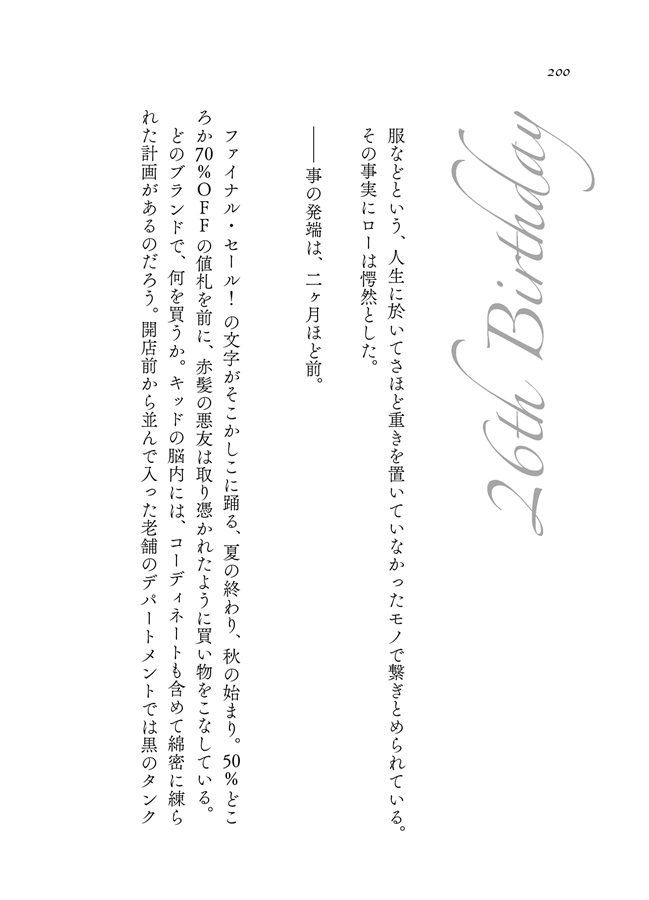 200
26th Birthday
服などという、人生に於いてさほど重きを置いていなかったモノで繋ぎとめられている。
その事実にローは愕然とした。
――事の発端は、二ヶ月ほど前。
ファイナル・セール！の文字がそこかしこに踊る、夏の終わり、秋の始まり。50%どこ
ろか70%OFFの値札を前に、赤髪の悪友は取り憑かれたように買い物をこなしている。
どのブランドで、何を買うか。キッドの脳内には、コーディネートも含めて綿密に練ら
れた計画があるのだろう。開店前から並んで入った老舗のデパートメントでは黒のタンク